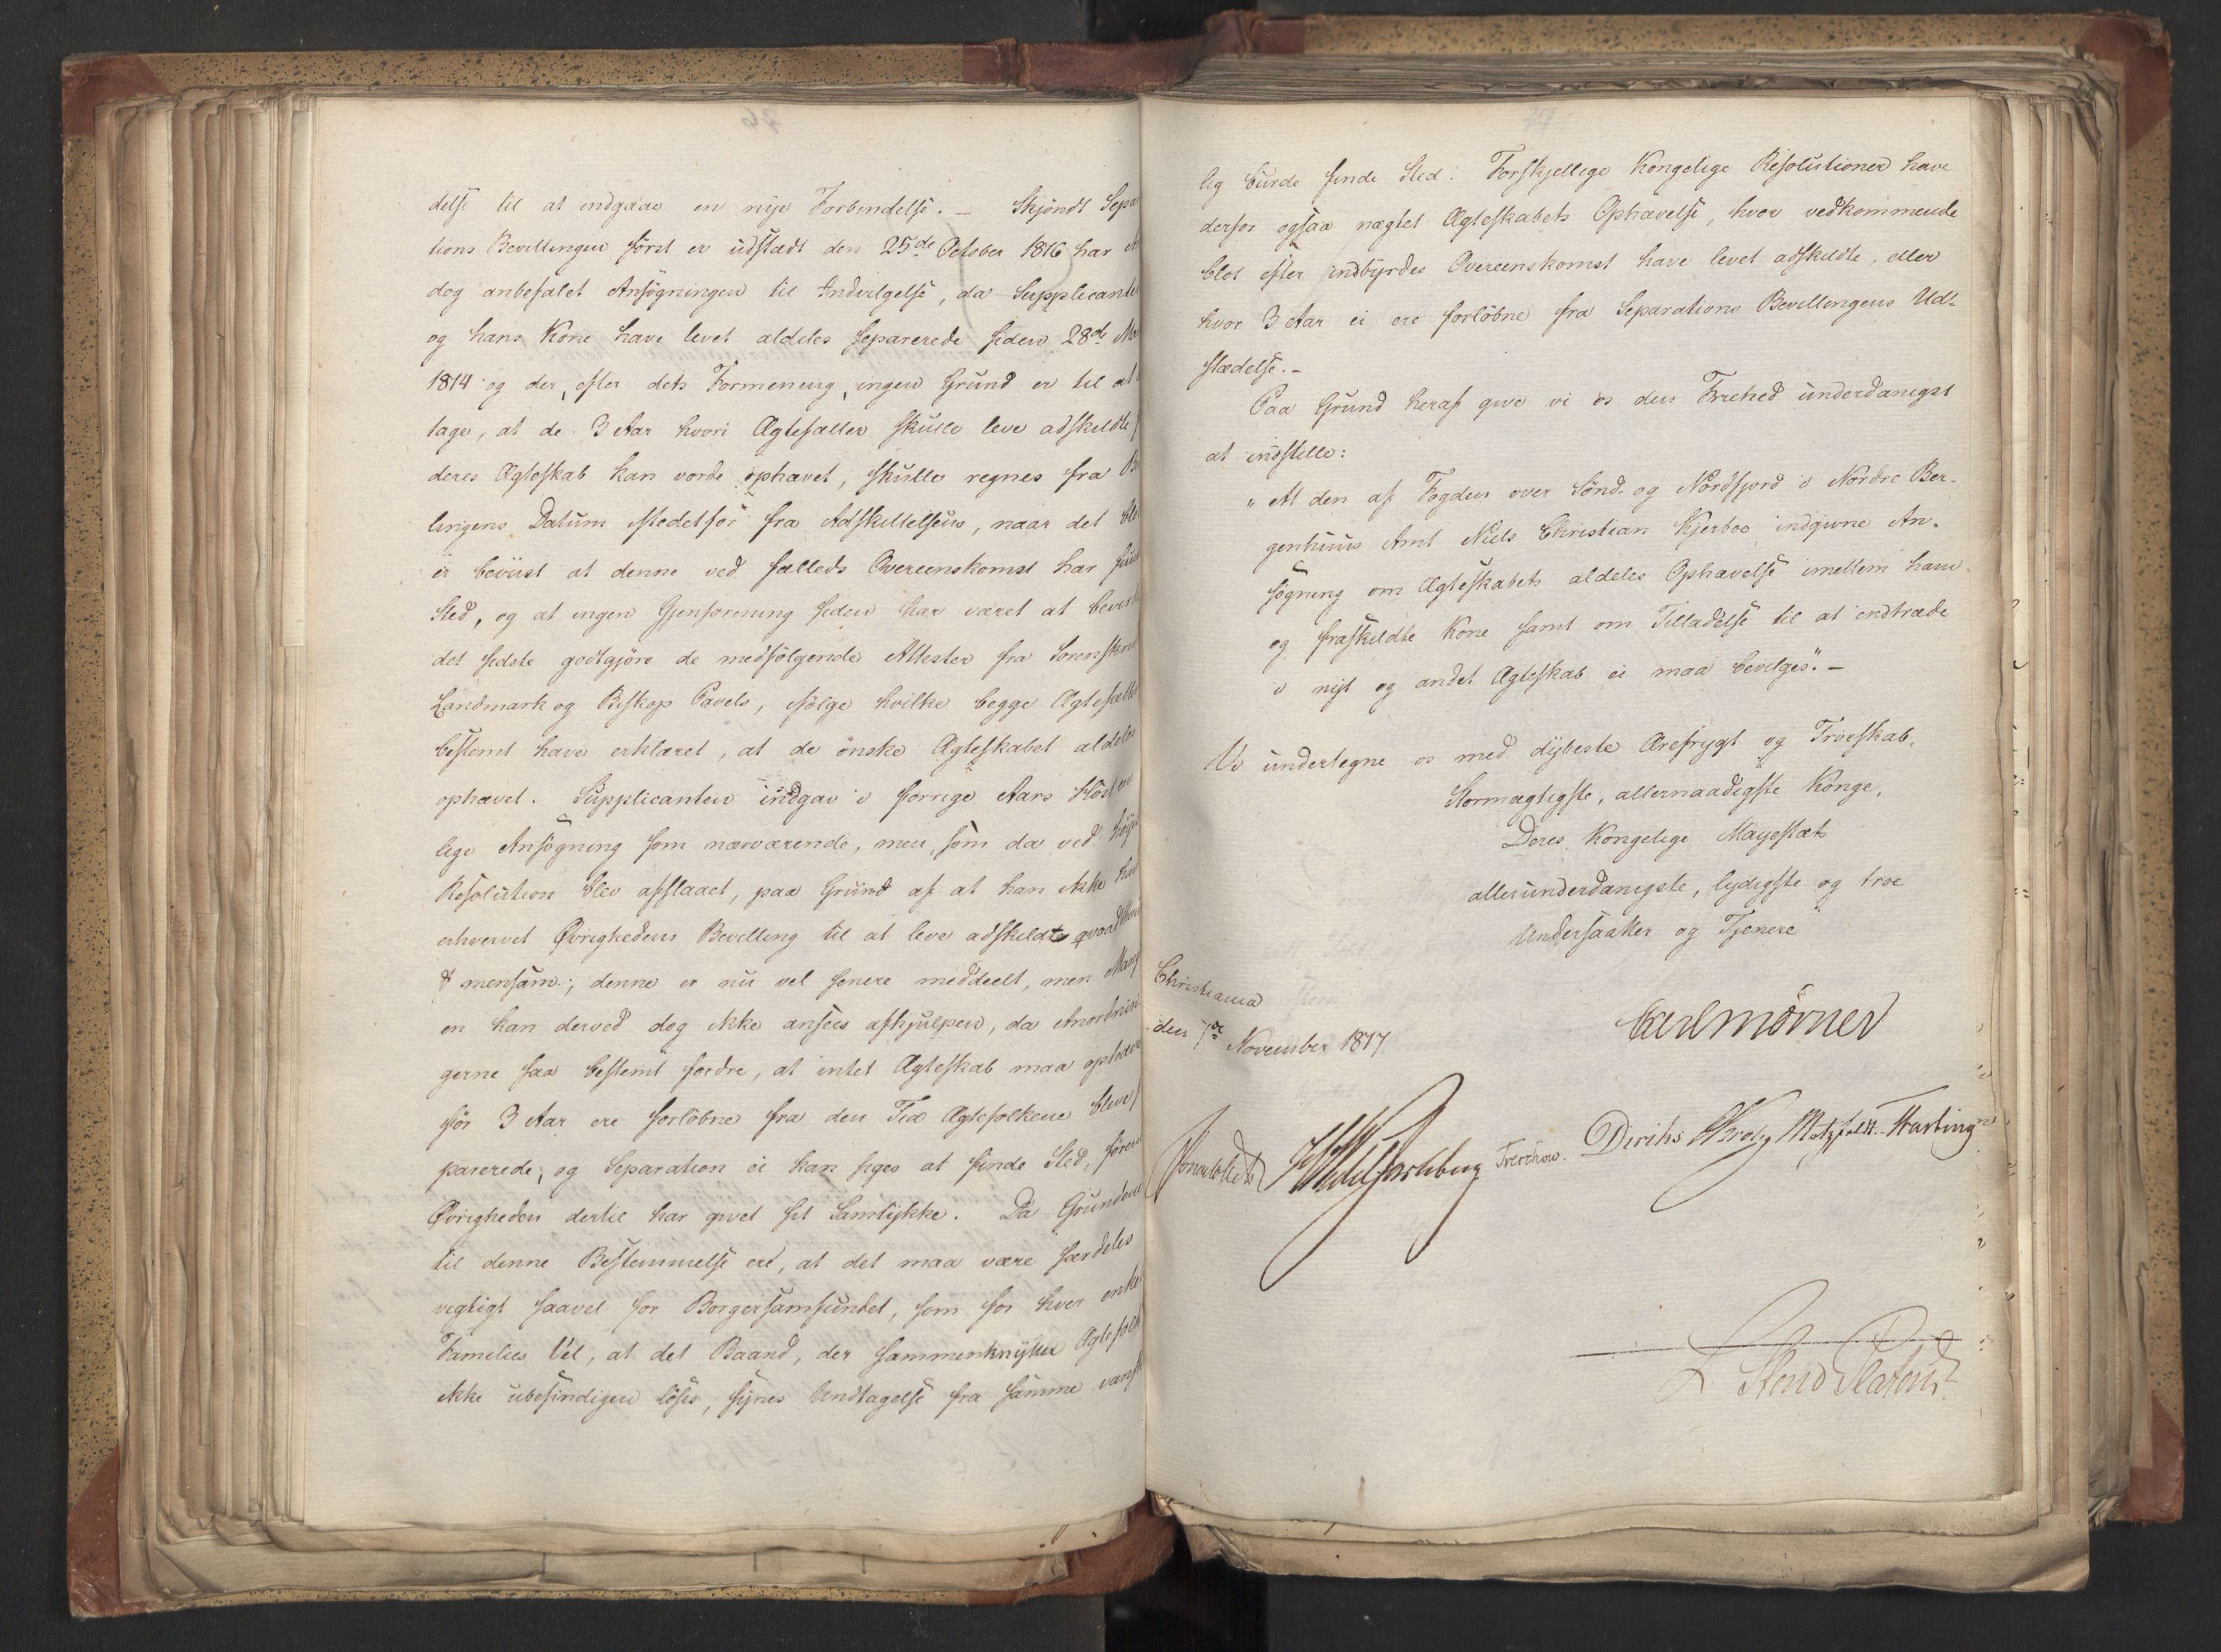 delse til at indgaae en nye Forbindelse. – Skjöndt Sepa
tions Bevillingen först er udstædt den 25de October 1816 har
dog anbefalet Ansögningen til Indvilgelse, da Supplicante
og hans Kone have levet aldeles separerede siden 28de
1814 og der, efter dets Formening, ingen Grund er til at
tage, at de 3 Aar hvori Ægtefæller skulle leve adskildte
deres Ægteskab kan vorde ophævet, skulle regnes fra B
lingens Datum istedetfor fra Adskillelsens, naar det ble
er beviist at denne ved fælleds Overeenskomst har
Sted, og at ingen Gjenforening siden har været at bevir
det sidste godtgjöre de medfölgende Attester fra Sorenskri
Landmark og Biskop Pavels, ifölge hvilke begge Ægtefælle
bestemt have erklæret, at de önske Ægteskabet aldeles
ophævet. Supplicanten indgav i forrige Aars Höst en
lige Ansögning som nærværende, men, som da ved höje
Resolution blev afslaaet, paa Grund af at han ikke hav
erhvervet Øvrighedens Bevilling til at leve adskildte qvoad thor
& mensam; denne er nu vel senere meddeelt, men Mang
en kan derved dog ikke ansees afhjulpen, da Anordnin
gerne saa bestemt fordre, at intet Ægteskab maa ophæv
för 3 Aar ere forlöbne fra den Tid Ægtefolkene bleve
parerede, og Separation ei kan siges at finde Sted, fören
Øvrigheden dertil har givet sit Samtykke. Da Grunden
til denne Bestemmelse ere, at det maa være særdeles
vigtigt saavel for Borgersamfundet, som for hver enke
Families Vel, at det Baand, der sammenknytter Ægtefolk
ikke ubesindigen löses, synes Undtagelse fra samme vansk
lig burde finde Sted. Forskjellige Kongelige Resolutioner have
derfor ogsaa nægtet Ægteskabets Ophævelse, hvor vedkommende
blot efter indbyrdes Overeenskomst have levet adskildte, eller
hvor 3 Aar ei ere forlöbne fra Separations Bevillingens Ud-
stædelse. –
Paa Grund heraf give vi os den Friehed underdanigst
at indstille:
„At den af Fogden over Sönd- og Nordfjord i Nordre Ber-
genhuus Amt Niels Christian Kjerboe indgivne An-
sögning om Ægteskabets aldeles Ophævelse imellem ham
og fraskildte Kone samt om Tilladelse til at indtræde
i nyt og andet Ægteskab ei maa bevilges“. –
Vi undertegne os med dybeste Ærefrygt og Troeskab,
Stormægtigste, allernaadigste Konge,
Deres Kongelige Mayestæts
allerunderdanigste, lydigste og troe
Undersaatter og Tjenere
Christiania
den 7de November 1817
Carl Mörner
Sommerhielm HWedel Jarlsberg Treschow. Diriks Krog Motzfeldt. Hasting